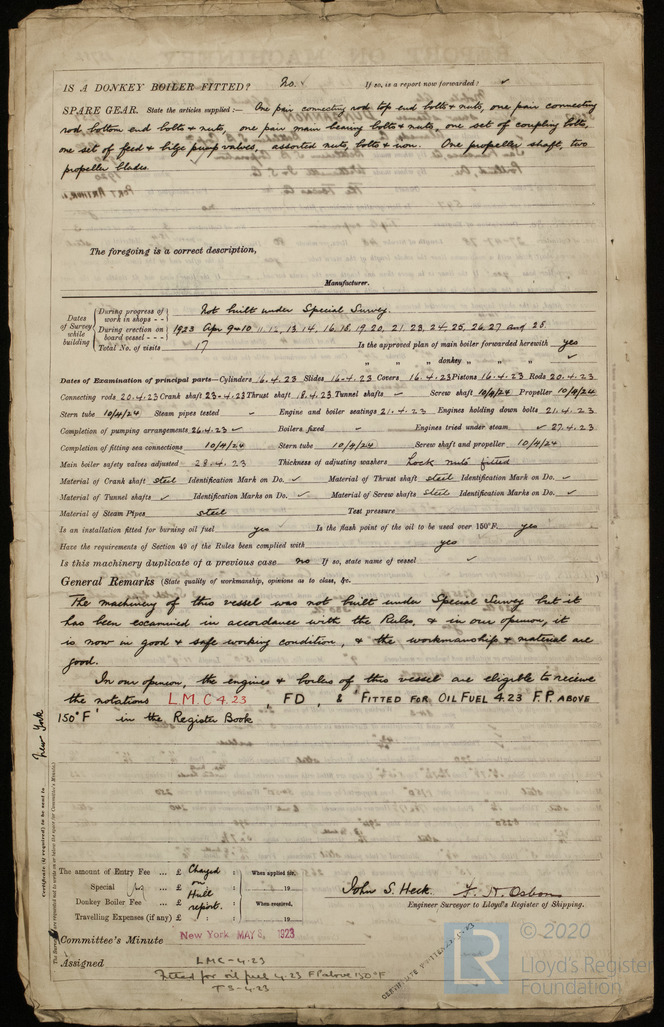 IS A DONKEY BOILER FITTED? No. ✓ If so, is a report now forwarded? ✓
SPARE GEAR. State the articles supplied:— One pair connecting rod top end bolts & nuts, one pair connecting
rod bottom end bolts & nuts, one pair main bearing bolts & nuts, one set of coupling bolts,
one set of feed & bilge pump valves, assorted nuts, bolts & iron. One propeller shaft, two
propeller blades.
The foregoing is a correct description,
Manufacturer.
Dates of Survey while building
During progress of work in shops - - Not built under Special Survey.
During erection on board vessel - - - 1923 Apr 9 & 10 11, 12, 13, 14, 16, 18, 19, 20, 21, 23, 24, 25, 26, 27 and 28.
Total No. of visits 17 Is the approved plan of main boiler forwarded herewith yes
" " donkey " " ✓
Dates of Examination of principal parts—Cylinders 16.4.23 Slides 16.4.23 Covers 16.4.23 Pistons 16.4.23 Rods 20.4.23
Connecting rods 20.4.23 Crank shaft 23.4.23 Thrust shaft 18.4.23 Tunnel shafts ✓ Screw shaft 10/4/24 Propeller 10/4/24
Stern tube 10/4/24 Steam pipes tested ✓ Engine and boiler seatings 21.4.23 Engines holding down bolts 21.4.23
Completion of pumping arrangements 26.4.23 ✓ Boilers fixed ✓ Engines tried under steam ✓ 27.4.23
Completion of fitting sea connections 10/4/24 Stern tube 10/4/24 Screw shaft and propeller 10/4/24
Main boiler safety valves adjusted 28.4.23 Thickness of adjusting washers Lock nuts fitted
Material of Crank shaft steel Identification Mark on Do. ✓ Material of Thrust shaft steel Identification Mark on Do. ✓
Material of Tunnel shafts ✓ Identification Marks on Do. ✓ Material of Screw shafts steel Identification Marks on Do. ✓
Material of Steam Pipes steel Test pressure
Is an installation fitted for burning oil fuel yes Is the flash point of the oil to be used over 150°F. yes
Have the requirements of Section 49 of the Rules been complied with yes
Is this machinery duplicate of a previous case no If so, state name of vessel ✓
General Remarks (State quality of workmanship, opinions as to class, &c. )
The machinery of this vessel was not built under Special Survey but it
has been examined in accordance with the Rules, & in our opinion, it
is now in good & safe working condition, & the workmanship & material are
good.
In our opinion, the engines & boilers of this vessel are eligible to receive
the notations L.M.C 4.23, FD, & "FITTED FOR OIL FUEL 4.23 F.P. ABOVE
150°F" in the Register Book
New York
Certificate (if required) to be sent to
The amount of Entry Fee ... £ Charged on Hull report. : When applied for,
Special ... £ : 19
Donkey Boiler Fee ... £ : When received,
Travelling Expenses (if any) £ : 19
John S. Heck. F. H. Osborn
Engineer Surveyor to Lloyd's Register of Shipping.
Committee's Minute New York MAY 8, 1923
Assigned LMC-4.23
Fitted for oil fuel 4.23 FP above 150°F
TS-4.23
LR
© 2020
Lloyd's Register
Foundation